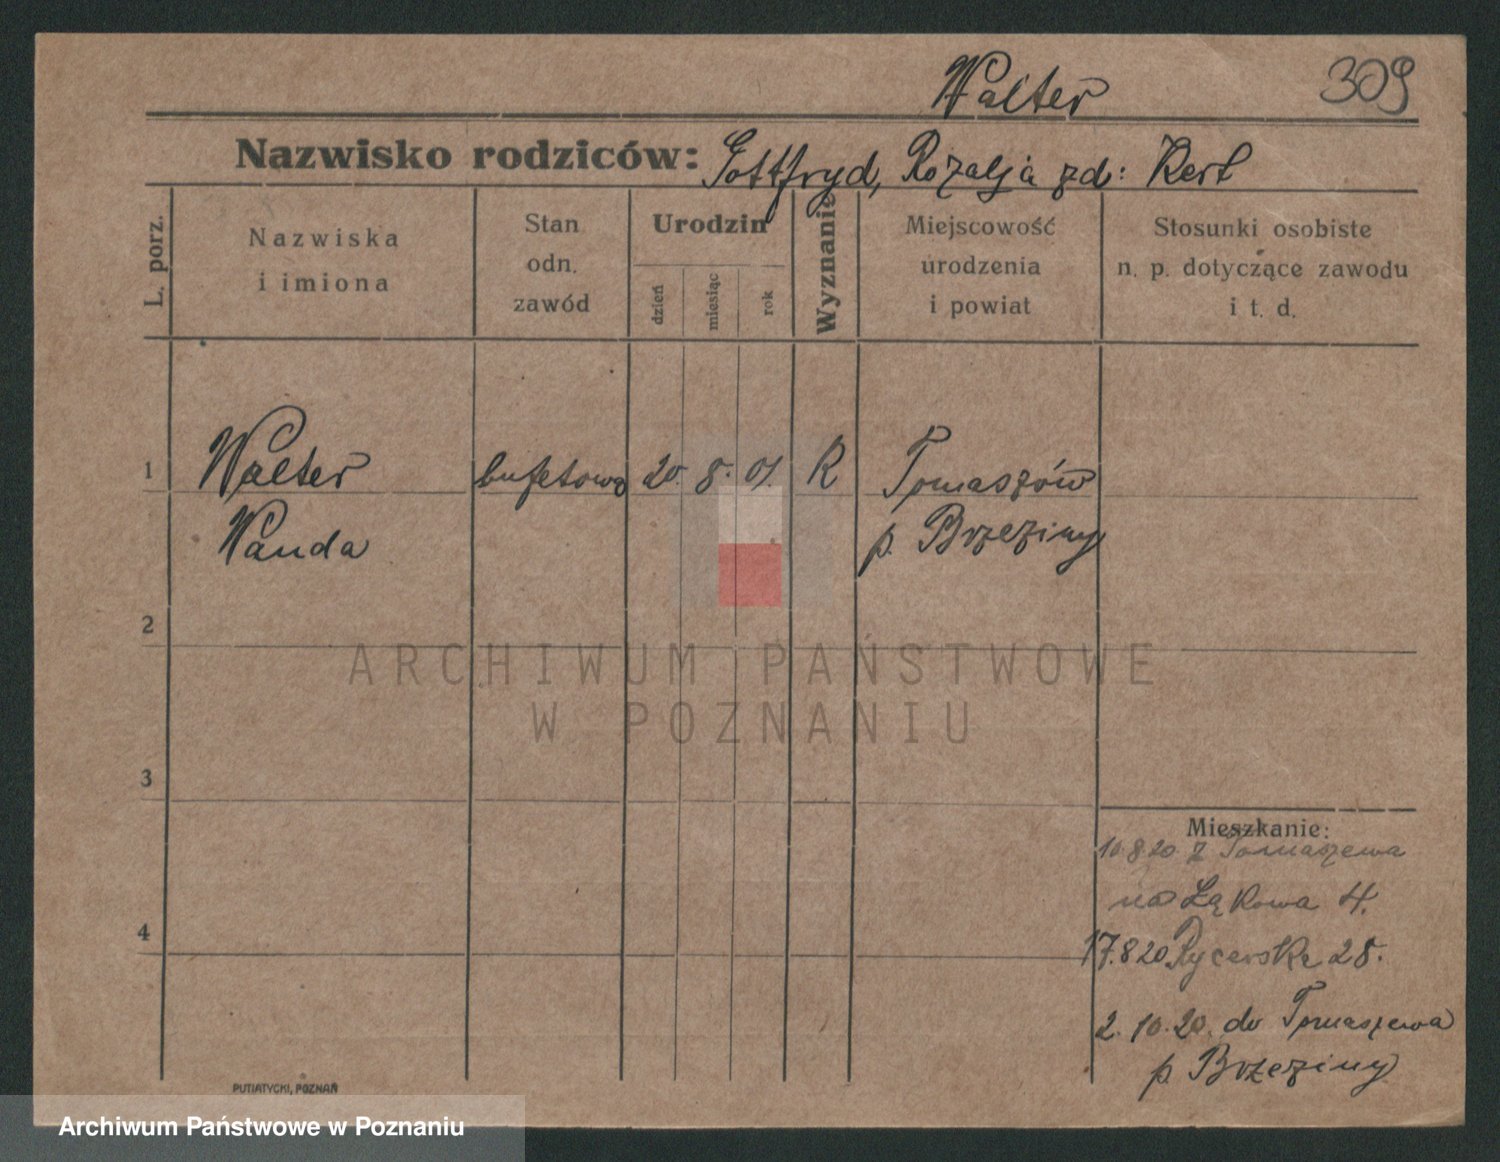 Walter 309
Nazwisko rodziców: Gottfryd, Rozalja zd: Kerl
L. porz.
Nazwiska
i imiona
Stan
odn.
zawód
Urodzin
dzień
miesiąc
rok
Wyznanie
Miejscowość
urodzenia
i powiat
Stosunki osobiste
n. p. dotyczące zawodu
i t. d.
1 Walter bufetowa 20. 8. 01. R Tomaszów
Wanda p. Brzeziny
2
3
4
Mieszkanie:
10.8.20 z Tomaszewa
na Łąkowa 4.
17.8.20 Rycerska 28.
2. 10. 20. do Tomaszewa
p. Brzeziny
PUTIATYCKI, POZNAŃ
ARCHIWUM PAŃSTWOWE
W POZNANIU
Archiwum Państwowe w Poznaniu